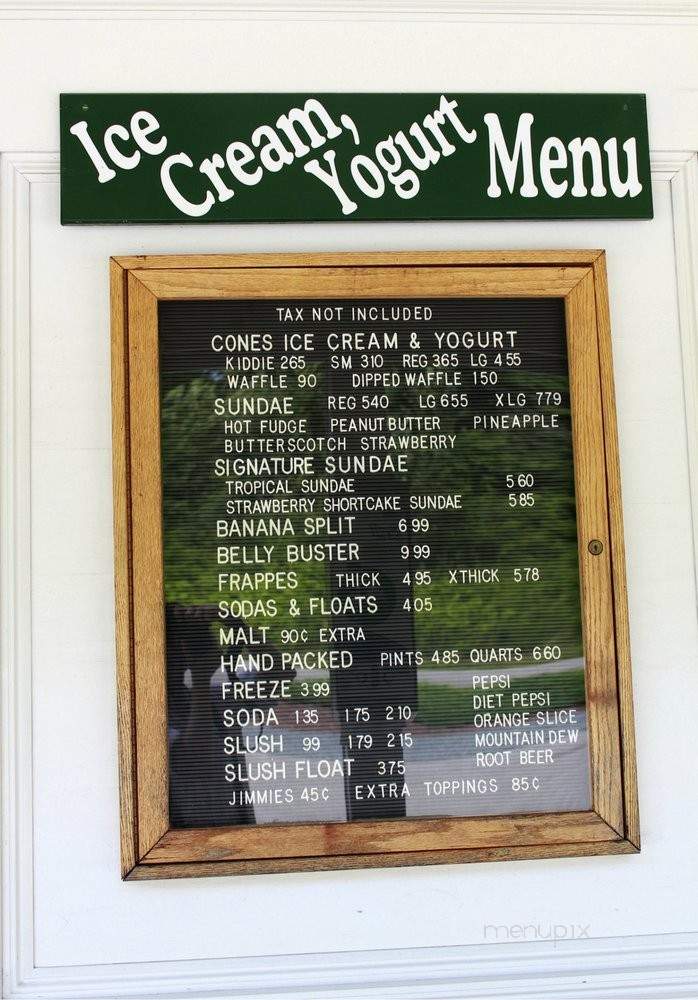 Ice Cream, Yogurt Menu
TAX NOT INCLUDED
CONES ICE CREAM & YOGURT
KIDDIE 265 SM 310 REG 365 LG 455
WAFFLE 90 DIPPED WAFFLE 150
SUNDAE REG 540 LG 655 XLG 779
HOT FUDGE PEANUT BUTTER PINEAPPLE
BUTTERSCOTCH STRAWBERRY
SIGNATURE SUNDAE
TROPICAL SUNDAE 560
STRAWBERRY SHORTCAKE SUNDAE 585
BANANA SPLIT 699
BELLY BUSTER 999
FRAPPES THICK 495 XTHICK 578
SODAS & FLOATS 405
MALT 90¢ EXTRA
HAND PACKED PINTS 485 QUARTS 660
FREEZE 399
SODA 135 175 210
SLUSH 99 179 215
SLUSH FLOAT 375
PEPSI
DIET PEPSI
ORANGE SLICE
MOUNTAIN DEW
ROOT BEER
JIMMIES 45¢ EXTRA TOPPINGS 85¢
menupix